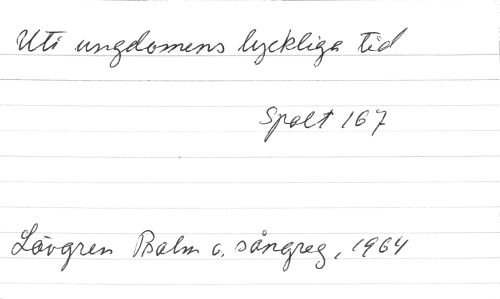 Uti ungdomens lyckliga tid
Spalt 167
Lövgren Psalm o. sångreg, 1964